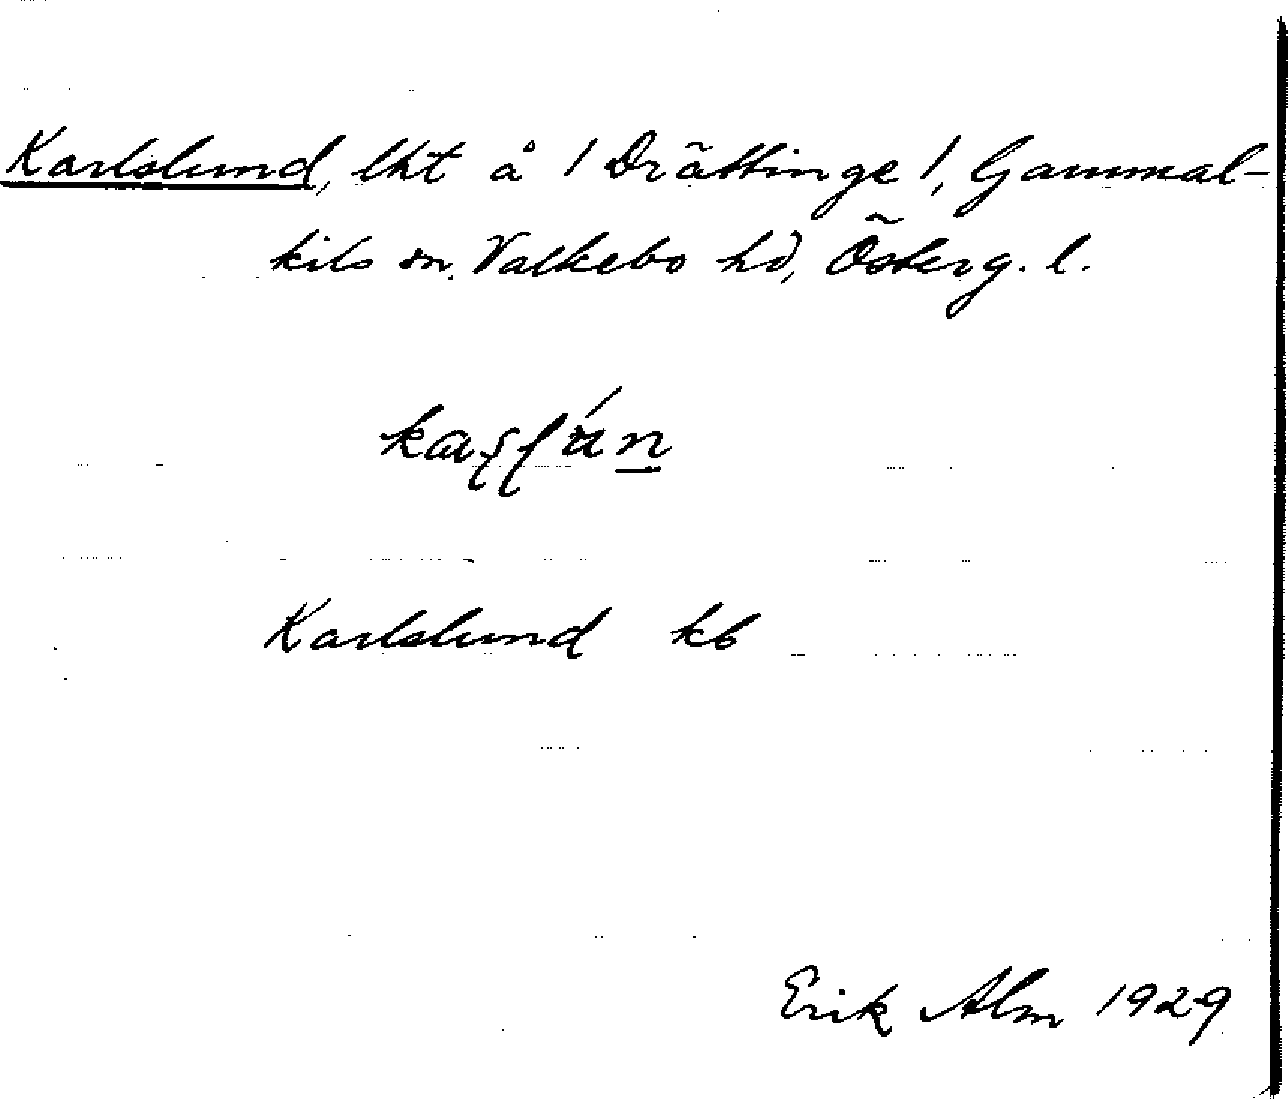 Karlslund, lht å / Drättinge /, Gammal-
kils sn, Valkebo hd, Österg. l.
Karlslund kb
Erik Alm 1929